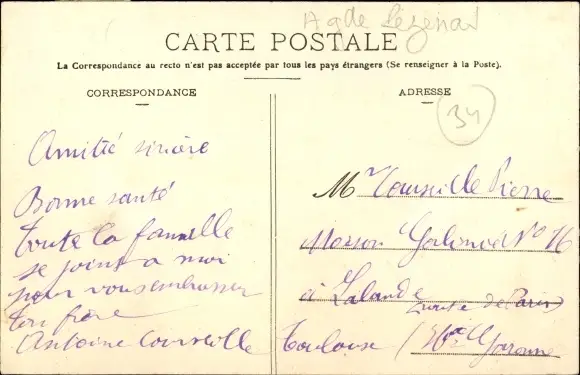 Agde
CARTE POSTALE
La Correspondance au recto n'est pas acceptée par tous les pays étrangers (Se renseigner à la Poste).
CORRESPONDANCE
Amitié sincère
Bonne santé
Toute la famille
se joint a moi
pour vous embrasser
ton frère
Antoine
ADRESSE
34
Mr Pierre
Maison No 16
à Lalande route de Paris
Toulouse (Hte Garonne